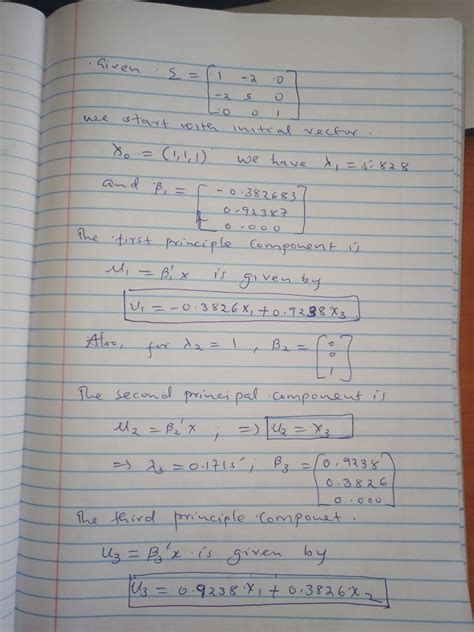 Given Σ = [1 -2 0
-2 5 0
0 0 1]
we start with initial vector.
x₀ = (1,1,1) we have λ₁ = 5.828
and β₁ = [-0.382683
0.92387
0.000]
The first principle component is
u₁ = β₁'x is given by
u₁ = -0.3826x₁ + 0.9238x₃
Also, for λ₂ = 1, β₂ = [0
0
1]
The second principal component is
u₂ = β₂'x ; ⇒ u₂ = x₃
⇒ λ₃ = 0.1715 ; β₃ = [0.9238
0.3826
0.000]
The third principle componet.
u₃ = β₃'x is given by
u₃ = 0.9238x₁ + 0.3826x₂